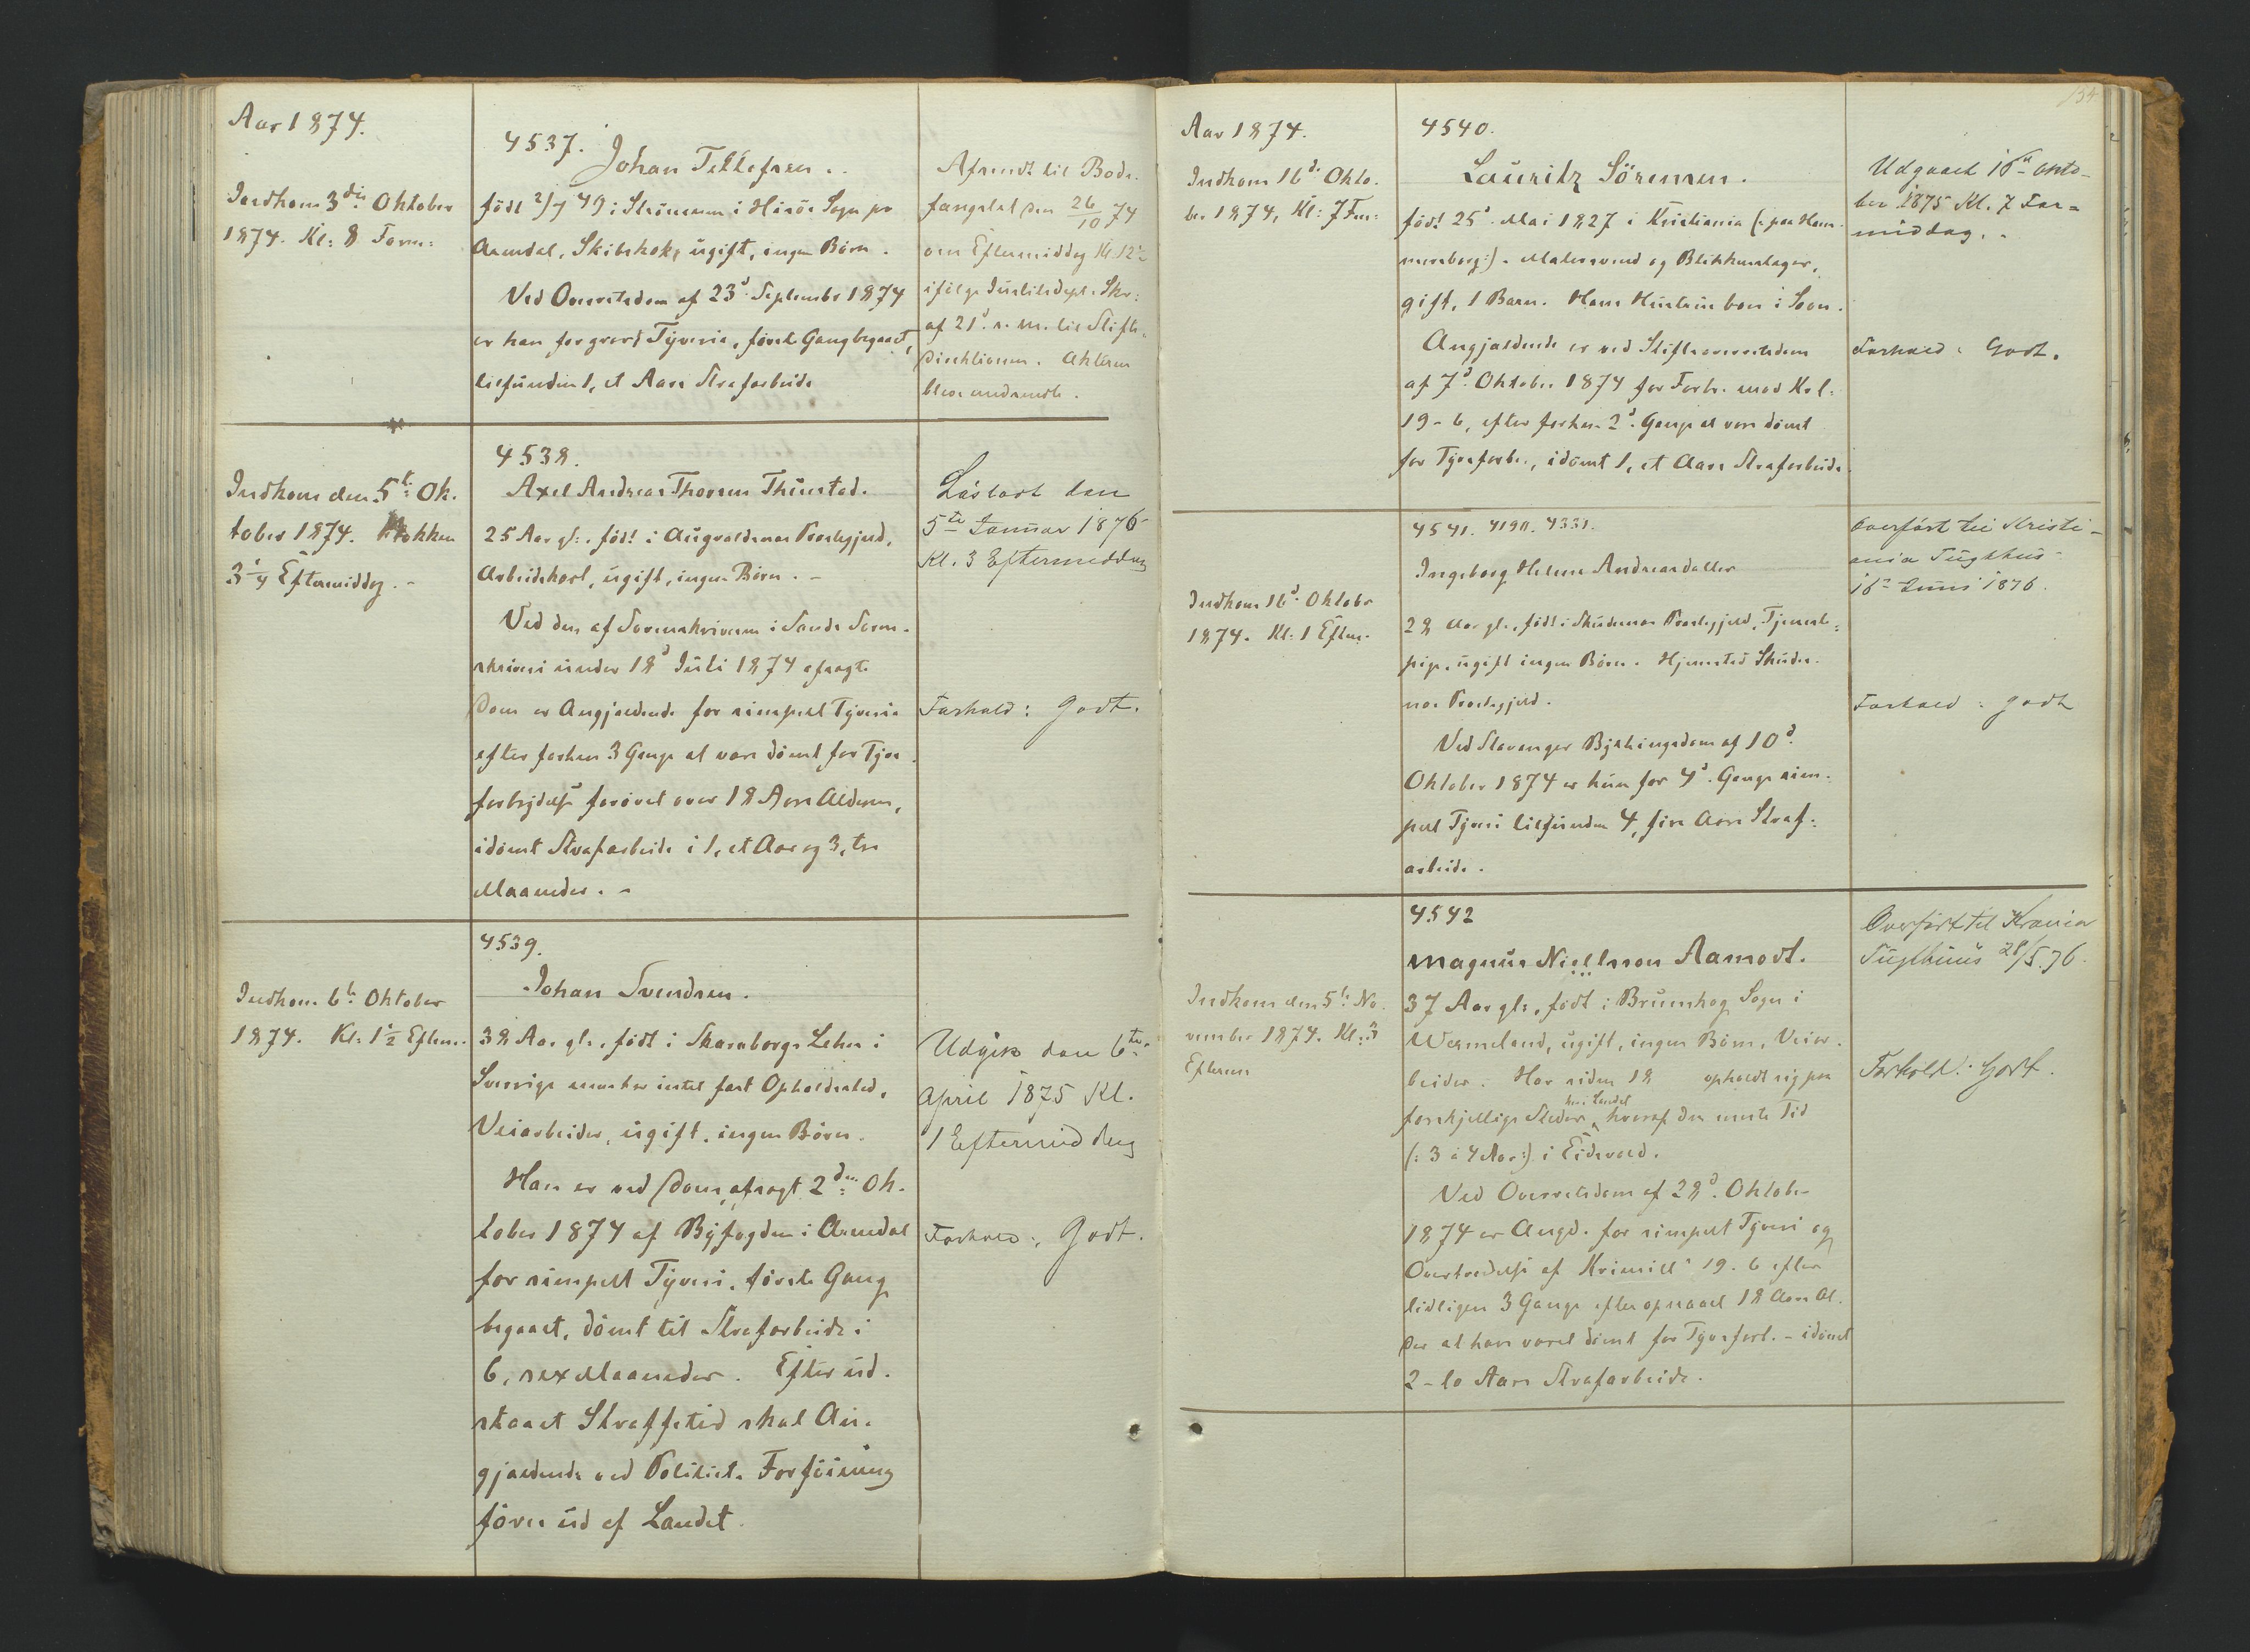 Aar 1874.
Indkom 3die Oktober
1874. Kl: 8 Form:
4537.
Johan Tellefsen.
født 2/7 49 i Strømmen i Hisøe Sogn pr
Arendal, Skibskok, ugift, ingen Børn.
Ved Overretsdom af 23d Septembr 1874
er han for grovt Tyverie, første Gang begaaet,
tilfunden 1, et Aars Strafarbeide
Afsendt til Bods-
fængslet den 26/10 74
om Eftermiddag Kl. 12½
ifølge Justitsdept. Skr:
af 21d s. M. til Stifts-
Direktionen. Akterne
bleve medsendte.
Indkom den 5te Ok-
tober 1874. Klokken
3¼ Eftermiddag. -
4538.
Axel Andreas Thorsen Thursted.
25 Aar gl:, født i Augvaldsnes Præstegjeld,
Arbeidskarl, ugift, ingen Børn. -
Ved den af Sorenskriveren i Sands Soren-
skriveri under 18d Juli 1874 afsagte
Dom er Angjældende for simpelt Tyverie
efter forhen 3 Gange at være dømt for Tyvs-
forbrydelse forøvet over 18 Aars Alderen,
idømt Strafarbeide i 1, et Aar og 3, tre
Maaneder. -
Løsladt den
5te Januar 1876
Kl. 3 Eftermiddag
Forhold: Godt.
Indkom 6te Oktober
1874. Kl. 1½ Efterm.
4539.
Johan Svendsen.
38 Aar gl., født i Skaraborgs Lehn i
Sverrige men har intet fast Opholdssted,
Veiarbeider, ugift, ingen Børn.
Han er ved Dom, afsagt 2den Ok-
tober 1874 af Byfogden i Arendal
for simpelt Tyveri, første Gang
begaaet, dømt til Strafarbeide i
6, sex Maaneder. Efter ud-
staaet Straffetid skal An-
gjældende ved Politiets Forføining
føres ud af Landet.
Udgik den 6te
April 1875 Kl.
1 Eftermiddag
Forhold: Godt.
134
Aar 1874.
Indkom 16d Okto-
ber 1874, Kl: 7 For:
4540.
Lauritz Sørensen.
født 25d Mai 1827 i Kristiania (: paa Ham-
mersborg :). Malersvend og Blikkenslager,
gift, 1 Barn. Hans Hustru bor i Soon.
Angjældende er ved Stiftsoverretsdom
af 7d Oktober 1874 for Forbr. mod Krl:
19-6, efter forhen 2d Gange at være dømt
for Tyvsforbr., idømt 1, et Aars Strafarbeide.
Udgaaet 16de Okto-
ber 1875 Kl. 7 For=
middag.
Forhold: Godt.
Indkom 16d Oktobr
1874. Kl: 1 Efterm.
4541. 4190. 4331.
Ingeborg Helene Andreasdatter
28 Aar gl., født i Skudesnes Præstegjeld, Tjeneste-
pige, ugift ingen Børn. Hjemsted Skudes-
nes Præstegjeld.
Ved Stavanger Bythingsdom af 10d
Oktober 1874 er hun for 4d Gangs sim-
pelt Tyveri tilfunden 4, fire Aars Straf-
arbeide.
Overført til Kristi-
ania Tugthus
16de Juni 1876.
Forhold: godt
Indkom den 5te No-
vember 1874. Kl: 3
Efterm
4542
Magnus Niellsson Aamodt.
37 Aar gl., født i Brunskog Sogn i
Wermeland, ugift, ingen Børn, Veiar-
beider. Har siden 18 opholdt sig paa
forskjellige Steder her i Landet, hvoraf den meste Tid
(: 3 à 4 Aar :) i Eidsvold.
Ved Overretsdom af 28d Oktober
1874 er Angd. for simpelt Tyveri og
Overtrædelse af Kriminll 19. 6 efter
tidligere 3 Gange efter opnaaet 18 Aars Al-
der at have været dømt for Tyvsforb. - idømt
2 - to Aars Strafarbeide.
Overført til Krania
Tugthuus 28/5. 76.
Forhold: Godt.